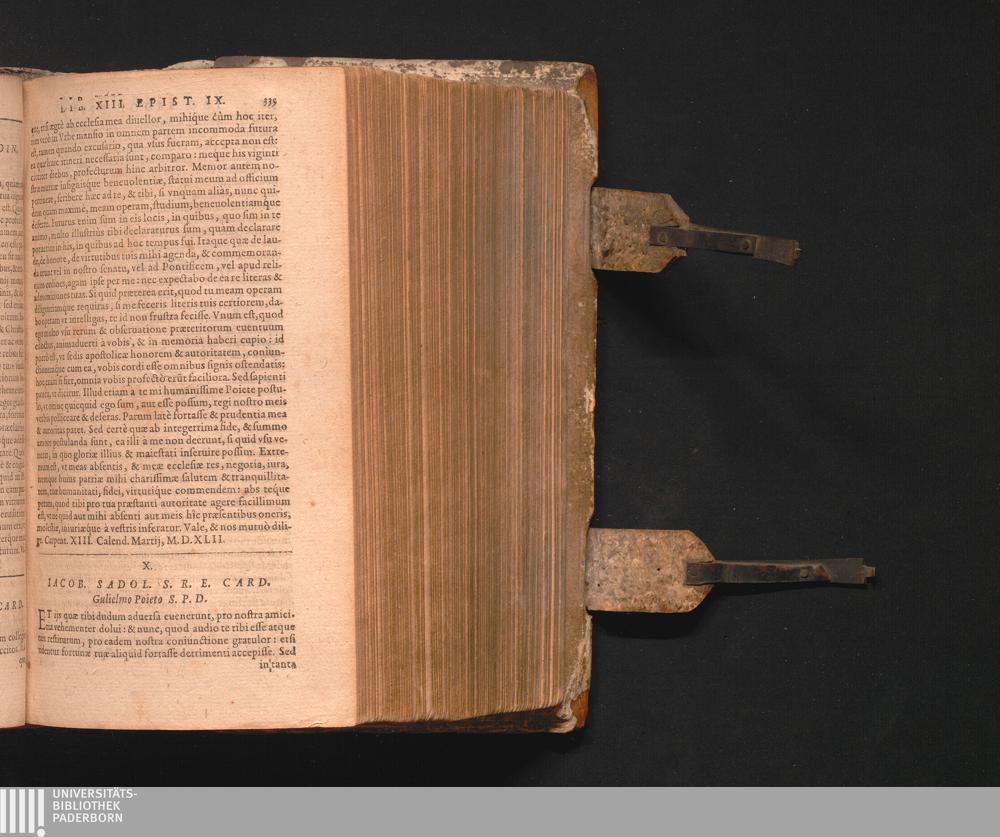 LIB. XIII. EPIST. IX. 339
ab ecclesia mea diuellor, mihique cùm hoc iter,
in Vrbe mansio in omnem partem incommoda futura
est, tamen quando excusatio, qua vsus fueram, accepta non est:
ea quæ huic itineri necessaria sunt, comparo: meque his viginti
circiter diebus, profecturum hinc arbitror. Memor autem no-
insignisque beneuolentiæ, statui meum ad officium
pertinere, scribere hæc ad te, & tibi, si vnquam aliàs, nunc qui-
dem quam maximè, meam operam, studium, beneuolentiamque
deferre. Futurus enim sum in eis locis, in quibus, quo sim in te
animo, multo illustriùs tibi declaraturus sum, quàm declarare
in his, in quibus ad hoc tempus fui. Itaque quæ de lau-
de, de honore, de virtutibus tuis mihi agenda, & commemoran-
da erunt vel in nostro senatu, vel ad Pontificem, vel apud reli-
ordines, agam ipse per me: nec expectabo de ea re literas &
admonitiones tuas. Si quid præterea erit, quod tu meam operam
diligentiamque requiras, si me feceris literis tuis certiorem, da-
bo operam vt intelligas, te id non frustra fecisse. Vnum est, quod
ego multo vsu rerum & obseruatione præteritorum euentuum
edoctus, animaduerti à vobis, & in memoria haberi cupio: id
est, vt sedis apostolicæ honorem & autoritatem, coniun-
ctionemque cum ea, vobis cordi esse omnibus signis ostendatis:
hoc enim si fiet, omnia vobis profectò erũt faciliora. Sed sapienti
pauca, vt dicitur. Illud etiam à te mi humanissime Poiete postu-
lo, vt omne quicquid ego sum, aut esse possum, regi nostro meis
verbis polliceare & deferas. Parum latè fortasse & prudentia mea
& autoritas patet. Sed certè quæ ab integerrima fide, & summo
amore postulanda sunt, ea illi à me non deerunt, si quid vsu ve-
niet, in quo gloriæ illius & maiestati inseruire possim. Extre-
mum est, vt meas absentis, & meæ ecclesiæ res, negotia, iura,
huius patriæ mihi charissimæ salutem & tranquillita-
tem, tuæ humanitati, fidei, virtutique commendem: abs teque
petam, quod tibi pro tua præstanti autoritate agere facillimum
est, vt ne quid aut mihi absenti aut meis hîc præsentibus oneris,
molestiæ, iniuriæque à vestris inferatur. Vale, & nos mutuò dili-
ge. Carpent. XIII. Calend. Martij, M.D.XLII.
X.
IACOB. SADOL. S. R. E. CARD.
Gulielmo Poieto S. P. D.
ET ijs quæ tibi dudum aduersa euenerunt, pro nostra amici-
tia vehementer dolui: & nunc, quod audio te tibi esse atque
tuis restitutum, pro eadem nostra coniunctione gratulor: etsi
videntur fortunæ tuæ aliquid fortasse detrimenti accepisse. Sed
in tanta
UNIVERSITÄTS-
BIBLIOTHEK
PADERBORN